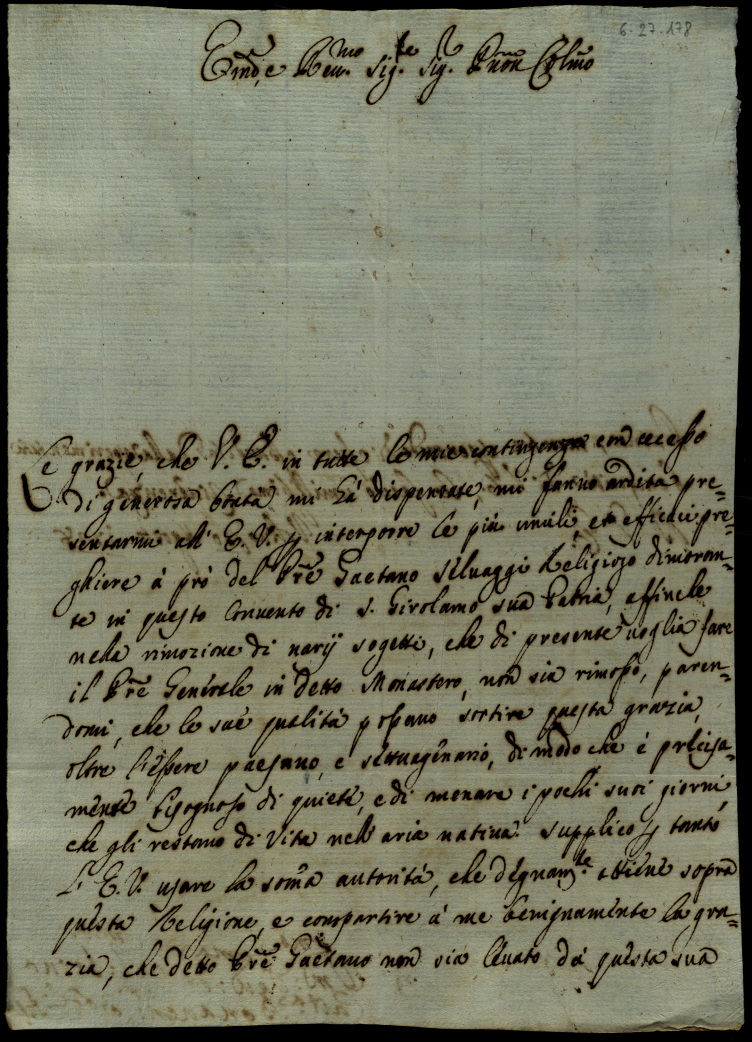 6.27.178
Em̃o, e Reu.mo Sig.re Sig.r P̃ron Col̃mo
Le grazie, che V. E. in tutte le mie contingenze con eccesso
di generosa bontà mi hà dispensate, mi fanno ardita pre=
sentarmi all' E. V. p interporre le più umili, et efficaci pre=
ghiere à prò del Pr̃e Gaetano Seluaggi Religioso dimoran=
te in questo Conuento di S. Girolamo sua Patria, affinche
nella rimozione di uarij sogetti, che di presente uoglia fare
il Pr̃e Generale in detto Monastero, non sia rimosso, paren=
domi, che le sue qualità possano sortire questa grazia,
oltre l'essere paesano, e settuagenario, di modo che è precisa=
mente bisognoso di quiete, e di menare i pochi suoi giorni,
che gli restano di Vita nell' aria natiua. Supplico p tanto
L' E. V. usare la som̃a autorità, che degnam.te ottiene sopra
questa Religione, e compartire à me benignamente la gra=
zia, che detto Pr̃e Gaetano non sia leuato dà questa sua